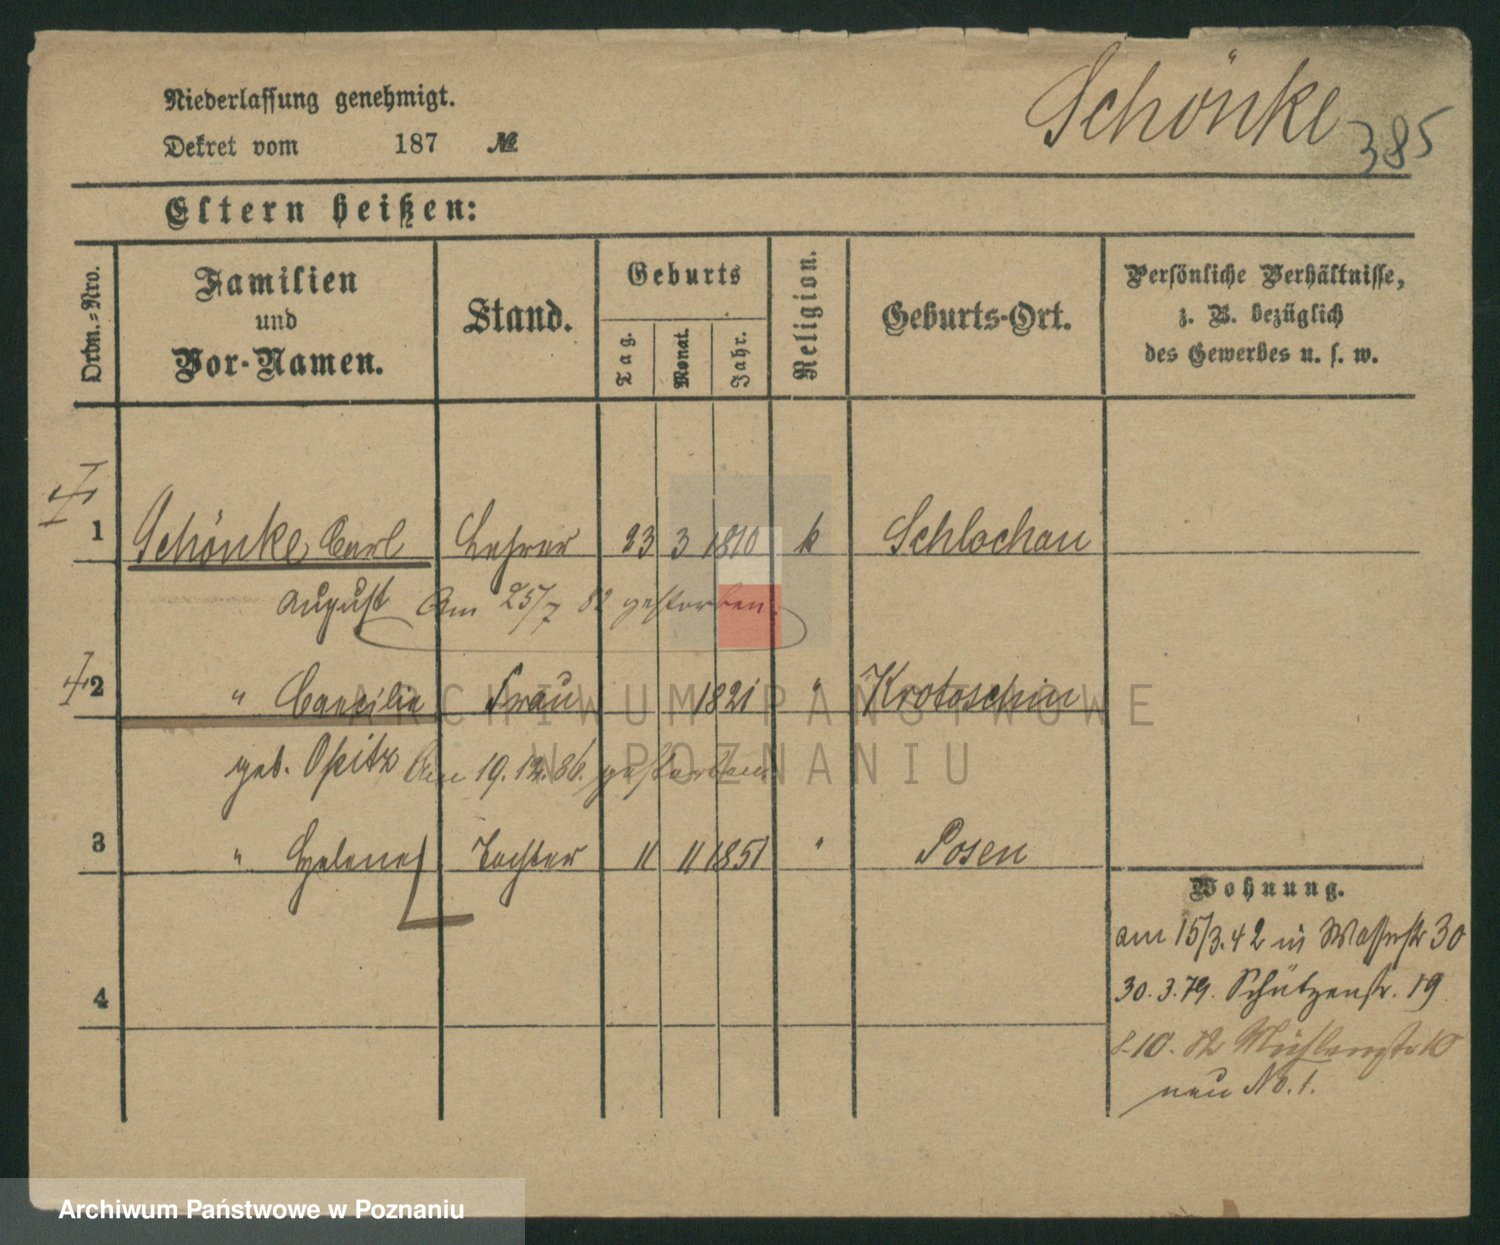 Schönke
385
Niederlassung genehmigt.
Dekret vom 187 №
Eltern heißen:
Ordn.=Nro.
Familien
und
Vor-Namen.
Stand.
Geburts
Tag.
Monat.
Jahr.
Religion.
Geburts-Ort.
Persönliche Verhältnisse,
z. B. bezüglich
des Gewerbes u. s. w.
1 Schönke, Carl Lehrer 23 3 1810 k Schlochau
August Am 25/7 82 gestorben.
2 " Caecilie Frau 1821 " Krotoschin
geb. Opitz Am 19.12.86. gestorben
3 " Helene Tochter 11 11 1851 " Posen
4
Wohnung.
am 15/3.42 in Wasserstr 30
30.3.79. Schützenstr. 19
8.10.82 Mühlenstr 10
neu No. 1.
ARCHIWUM PAŃSTWOWE
W POZNANIU
Archiwum Państwowe w Poznaniu